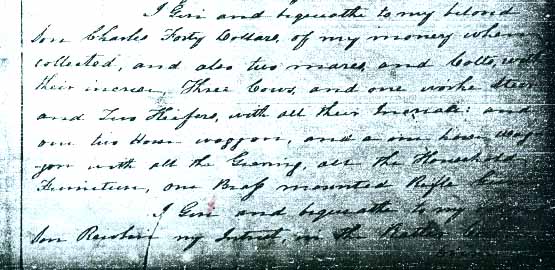 I Give and bequeathe to my beloved
Son Charles Forty Dollars, of my money when
collected, and also two mares, and Colts, with
their increase, Three Cows, and one worke Steer
and Two Heifers, with all their Increase: and
one two Horse waggon, and a one horse wag-
gon with all the Graning, all the Household
Furniture, one Brass mounted Rifle
I Give and bequeathe to my
Son Reuben my Intrest, in the